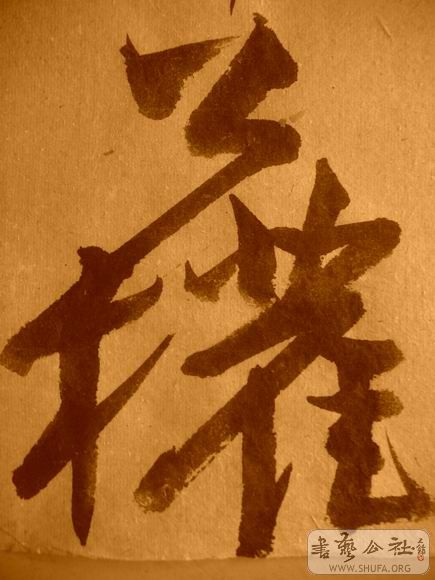 權
書藝公社
WWW.SHUFA.ORG